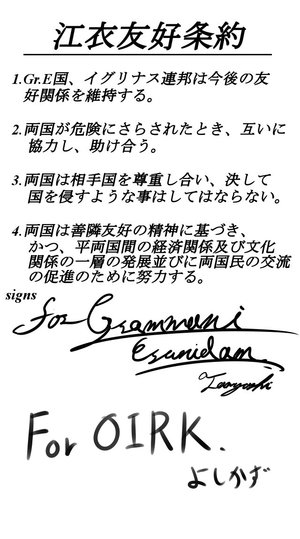 江衣友好条約
1.Gr.E国、イグリナス連邦は今後の友
好関係を維持する。
2.両国が危険にさらされたとき、互いに
協力し、助け合う。
3.両国は相手国を尊重し合い、決して
国を侵すような事はしてはならない。
4.両国は善隣友好の精神に基づき、
かつ、平両国間の経済関係及び文化
関係の一層の発展並びに両国民の交流
の促進のために努力する。
signs
for Grammani
For OIRK.
よしかず